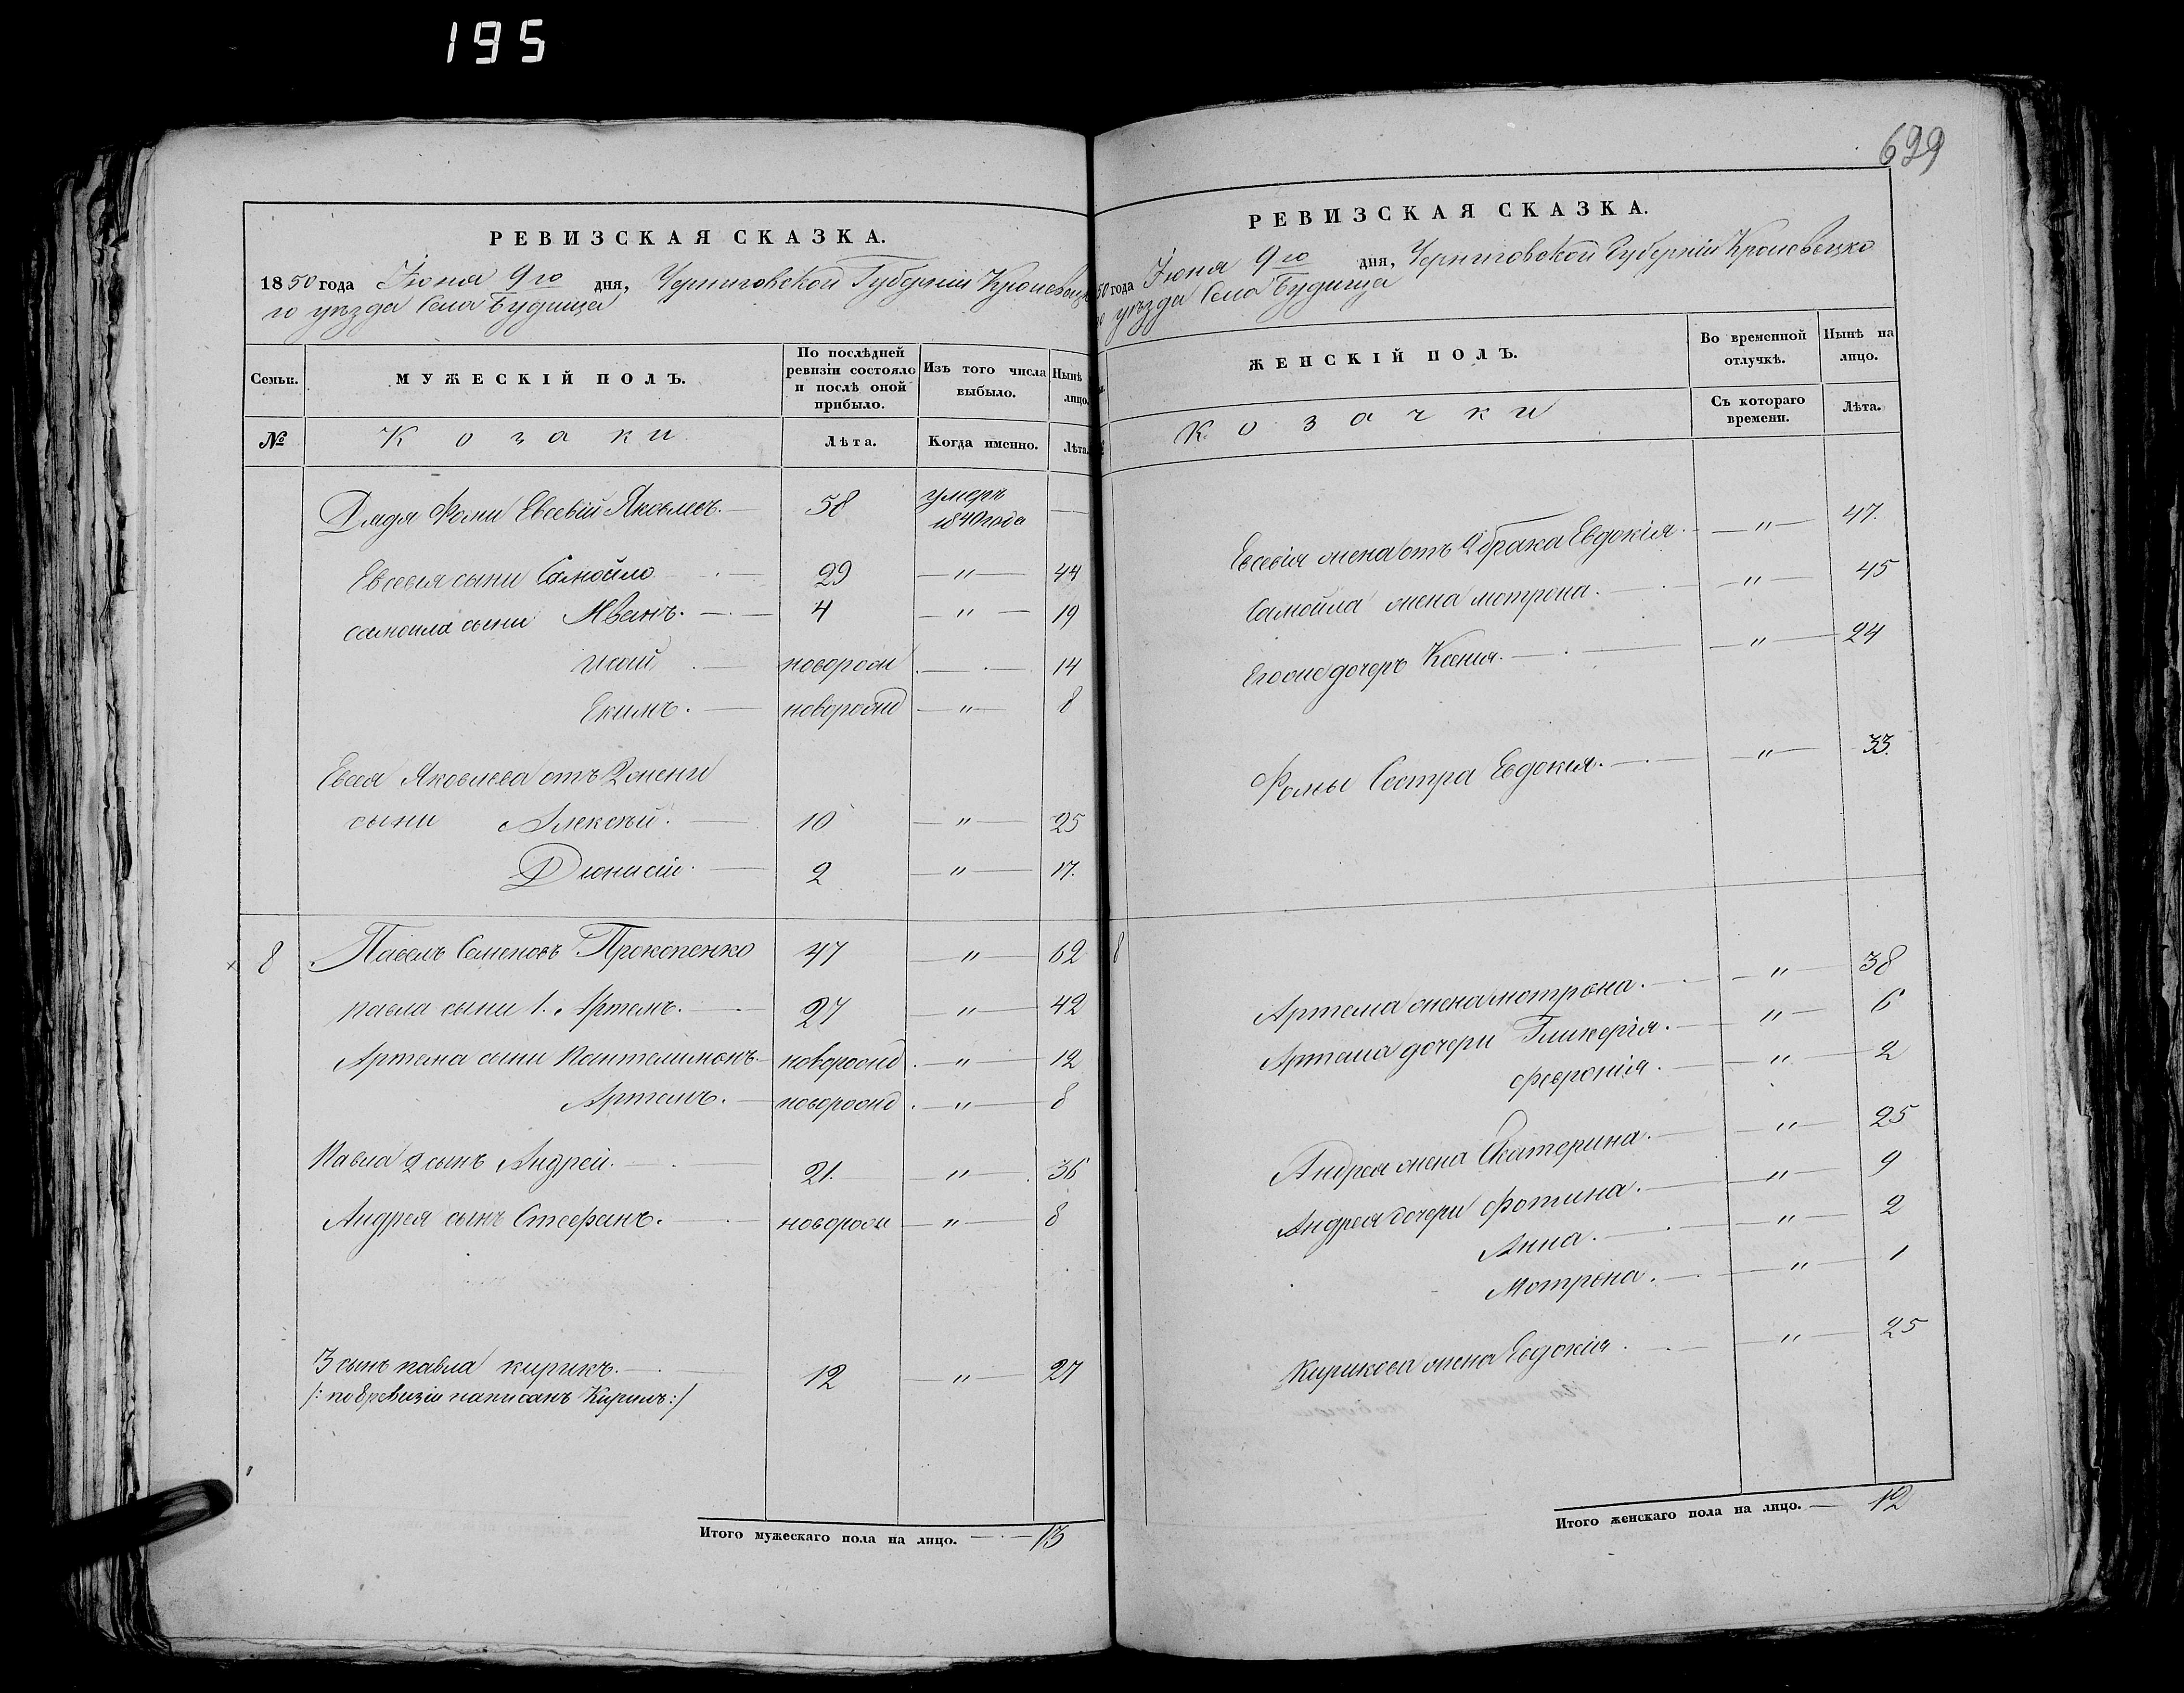 195
699
РЕВИЗСКАЯ СКАЗКА.
1850 года Июня 9го дня, Черниговской Губерніи Кролевецка
го уезда Села Будища
Семьи.
МУЖЕСКІЙ ПОЛЪ.
По послѣдней ревизіи состояло и послѣ оной прибыло.
Изъ того числа выбыло.
Нынѣ лицо.
№
Козаки
Лѣта.
Когда именно.
Лѣта.
Дядя Фоми Евсевій Яковлевъ. — 58 умеръ 1840 года —
Евсевія сыни Самойло — 29 — " — 44
самоила сыни Иванъ. — 4 — " — 19
новорож — 14
Екимъ. — новорожд — " — 8
Яковлева отъ 2 жени
сыни Алексѣй. — 10 — " — 25
Діонисій. — 2 — " — 17.
8 Павелъ Семеновъ Прокопенко 47 — " — 62
павла сыни 1. Артемъ. — 27 — " — 42
Артема сыни Пантелимонъ. — новорожд. — " — 12
Артемъ. — новорожд. — " — 8
Павла 2 сынъ Андрей. — 21. — " — 36
Андрея сынъ Стефанъ. новорож — " — 8
3 сынъ павла кирикъ. — 12 — " — 27
/: по 8 ревизіи написанъ Кирилъ :/
Итого мужескаго пола на лицо. — 13
РЕВИЗСКАЯ СКАЗКА.
50 года Июня 9го дня, Черниговской Губерніи Кролевецка
го уезда Села Будища
ЖЕНСКІЙ ПОЛЪ.
Во временной отлучкѣ.
Нынѣ на лицо.
Козачки
Съ котораго времени.
Лѣта.
Евсевія жена отъ 2 брака Евдокія. — " — 47.
Самойла жена мотрона. — " — 45
Его же дочеръ Ксенія. — " — 24
Фомы Сестра Евдокія. — " — 33.
8
Артема жена мотрона. — " — 38
Артема дочери Гликерія. — " — 6
Феврониія. — " — 2
Андрея жена Екатерина. — " — 25
Андрея дочери Фотина. — " — 9
Анна. — " — 2
Мотрона. — " — 1
Кирикова жена Евдокія. — " — 25
Итого женскаго пола на лицо. — 12